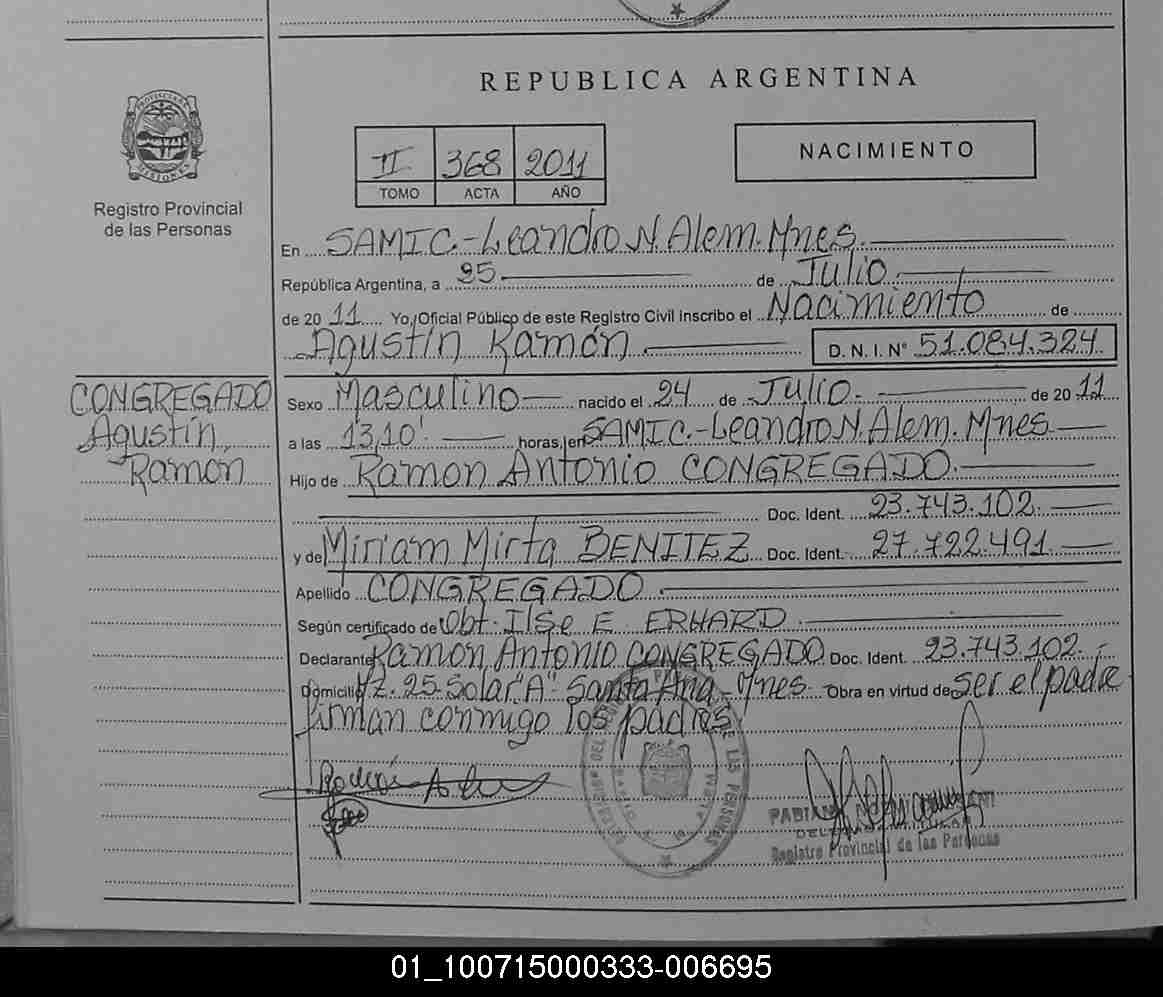 REPUBLICA ARGENTINA
PROVINCIA DE MISIONES
Registro Provincial
de las Personas
II 368 2011
TOMO ACTA AÑO
NACIMIENTO
En SAMIC.-Leandro N. Alem. Mnes.
República Argentina, a 25 de Julio.
de 20 11 Yo, Oficial Público de este Registro Civil inscribo el Nacimiento de
Agustín Ramón D. N. I. N° 51.084.324
CONGREGADO
Agustín,
Ramon
Sexo Masculino nacido el 24 de Julio. de 20 11
a las 13,10' horas, en SAMIC.-Leandro N. Alem. Mnes
Hijo de Ramon Antonio CONGREGADO.
Doc. Ident. 23.743.102.
y de Miriam Mirta BENITEZ Doc. Ident. 27.722.491
Apellido CONGREGADO.
Según certificado de Obt. Ilse E. ERHARD.
Declarante Ramon Antonio CONGREGADO Doc. Ident. 23.743.102.-
Domicilio Lz. 25-Solar "A"- Santa Ana - Mnes. Obra en virtud de ser el padre
firman conmigo los padres
REGISTRO PROVINCIAL DE LAS PERSONAS
Registro Provincial de las Personas
01_100715000333-006695